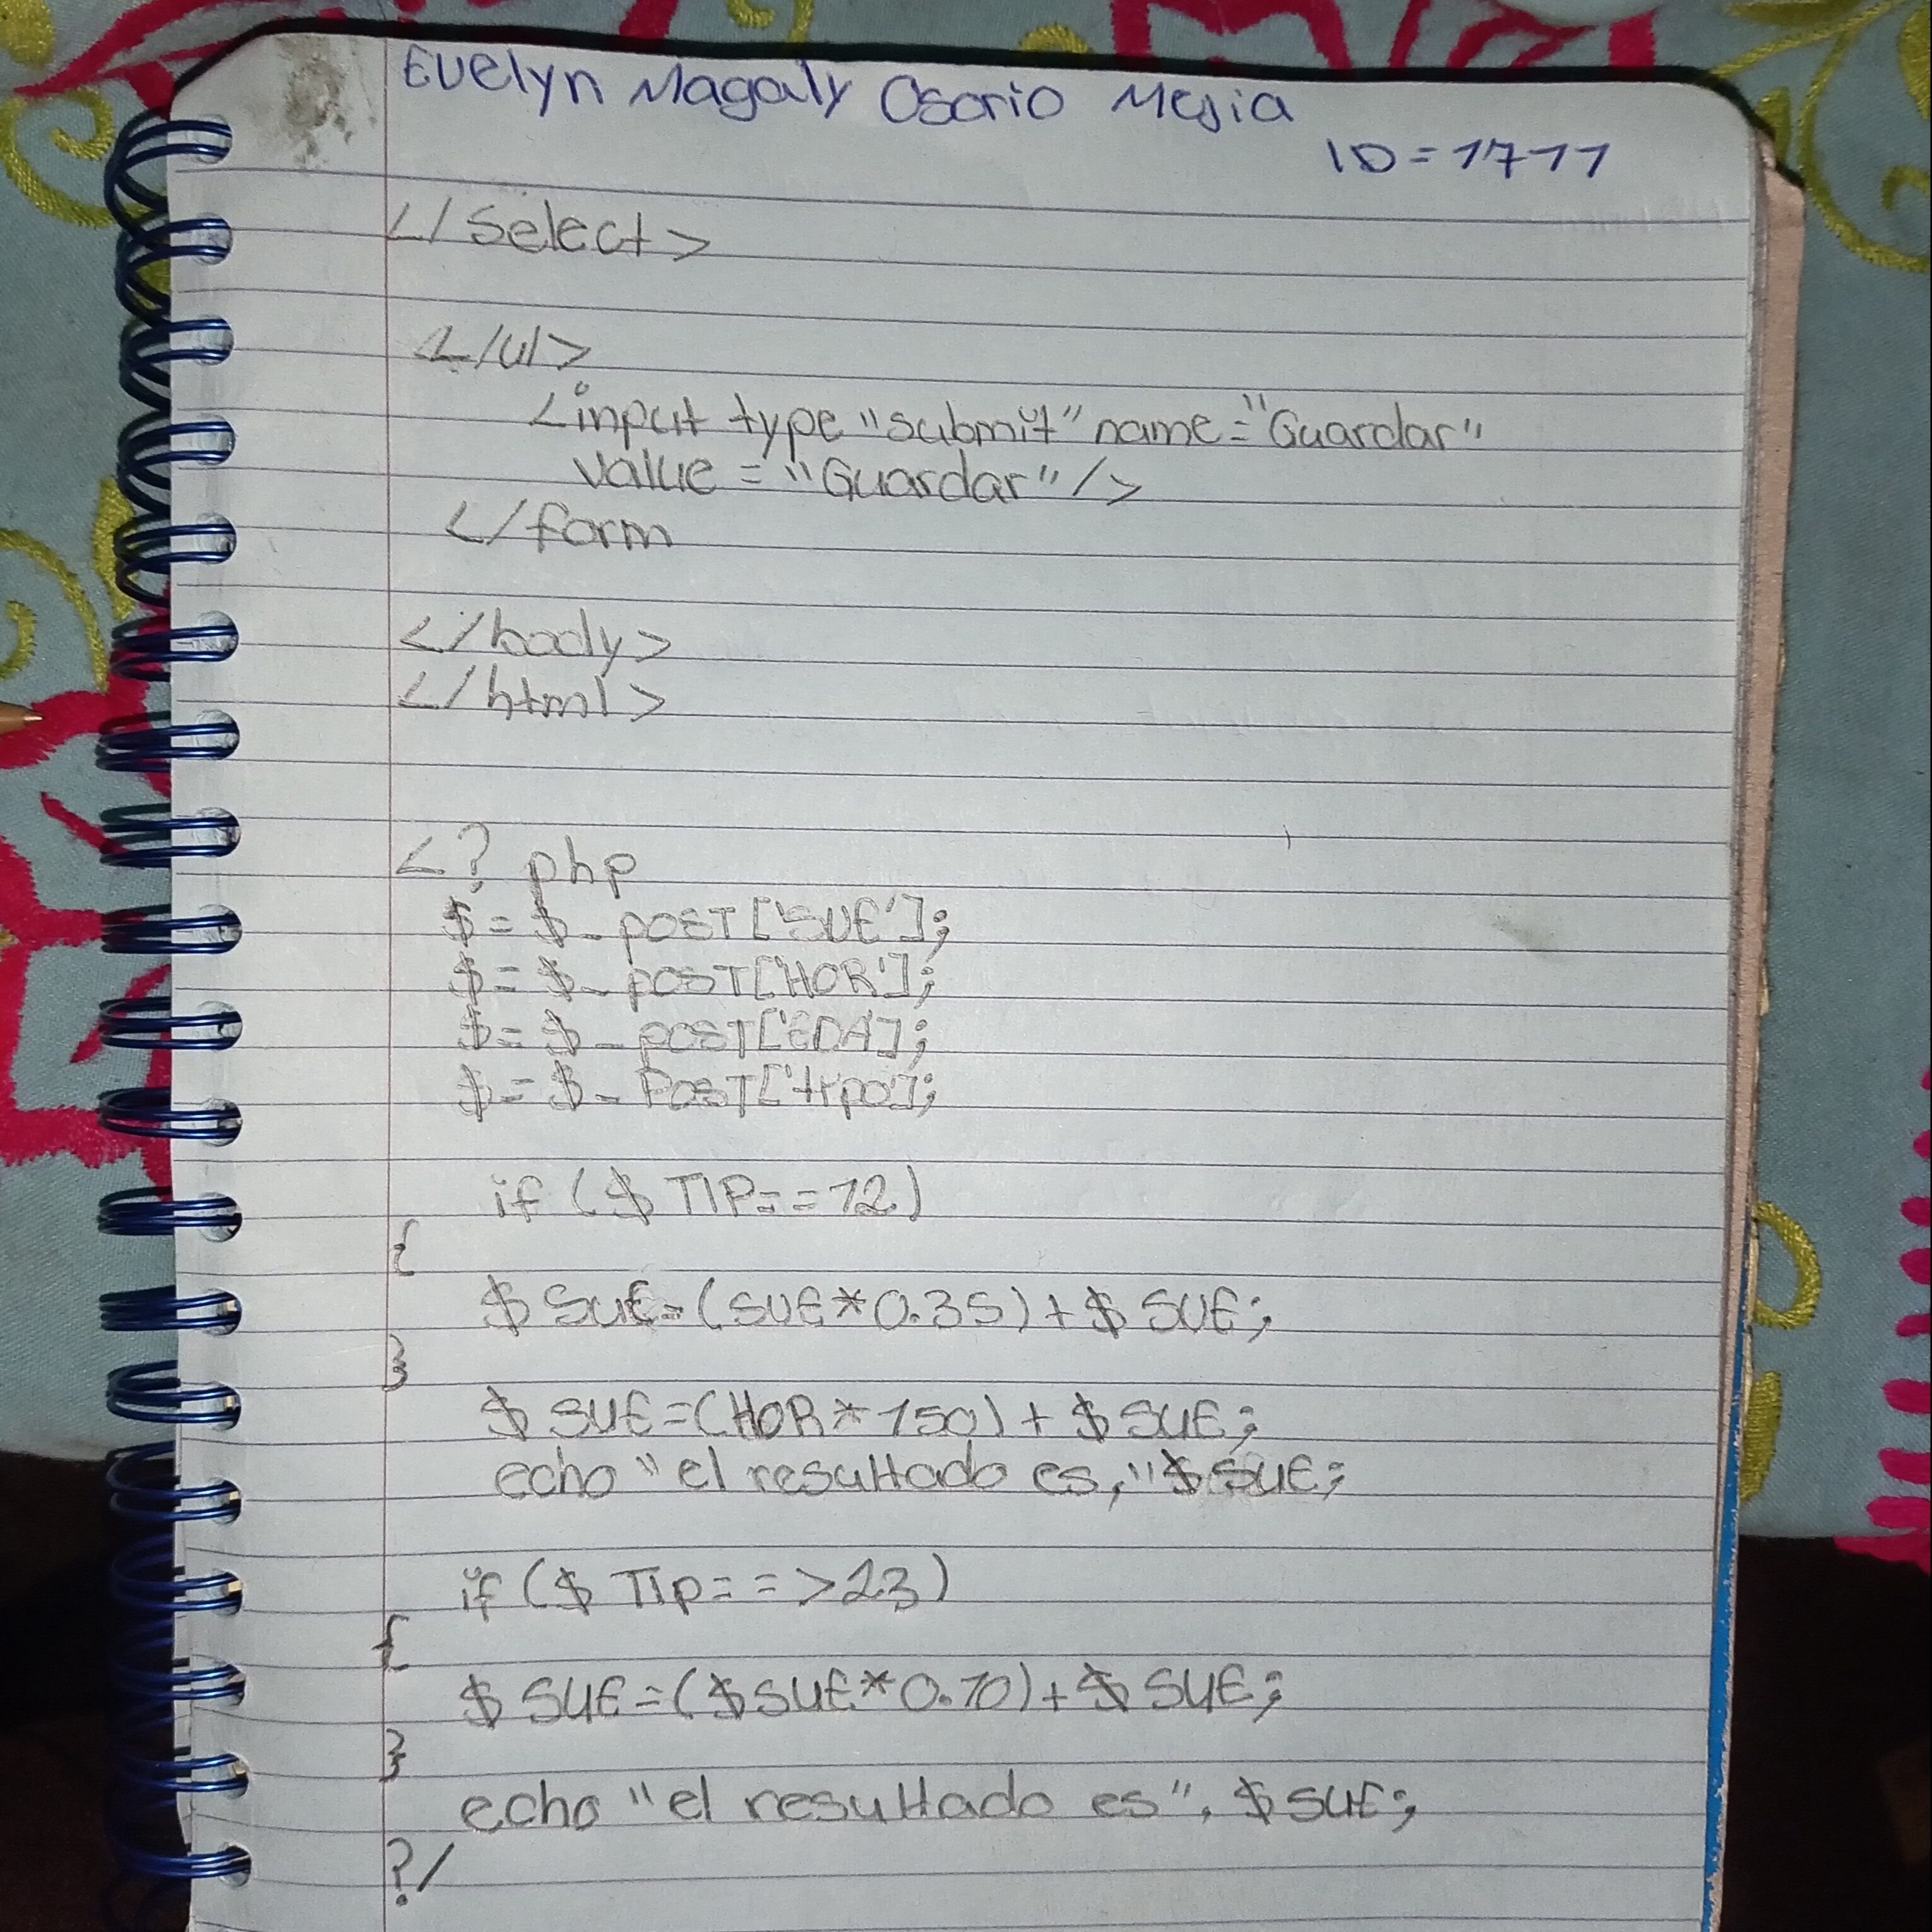 Evelyn Magaly Osorio Mejia
ID=1711
</select>
</ul>
<input type "submit" name="Guardar"
value="Guardar"/>
</form
</body>
</html>
<? php
$=$_POST['SUE'];
$=$_POST['HOR'];
$=$_POST['EDA];
$=$_POST['tipo'];
if ($ TIP==12)
{
$ SUE=(SUE*0.35)+$ SUE;
}
$ SUE=(HOR*150)+$ SUE;
echo "el resultado es,"$SUE;
if ($ TIp==>23)
{
$ SUE=($SUE*0.10)+$ SUE;
}
echo "el resultado es", $SUE;
?/